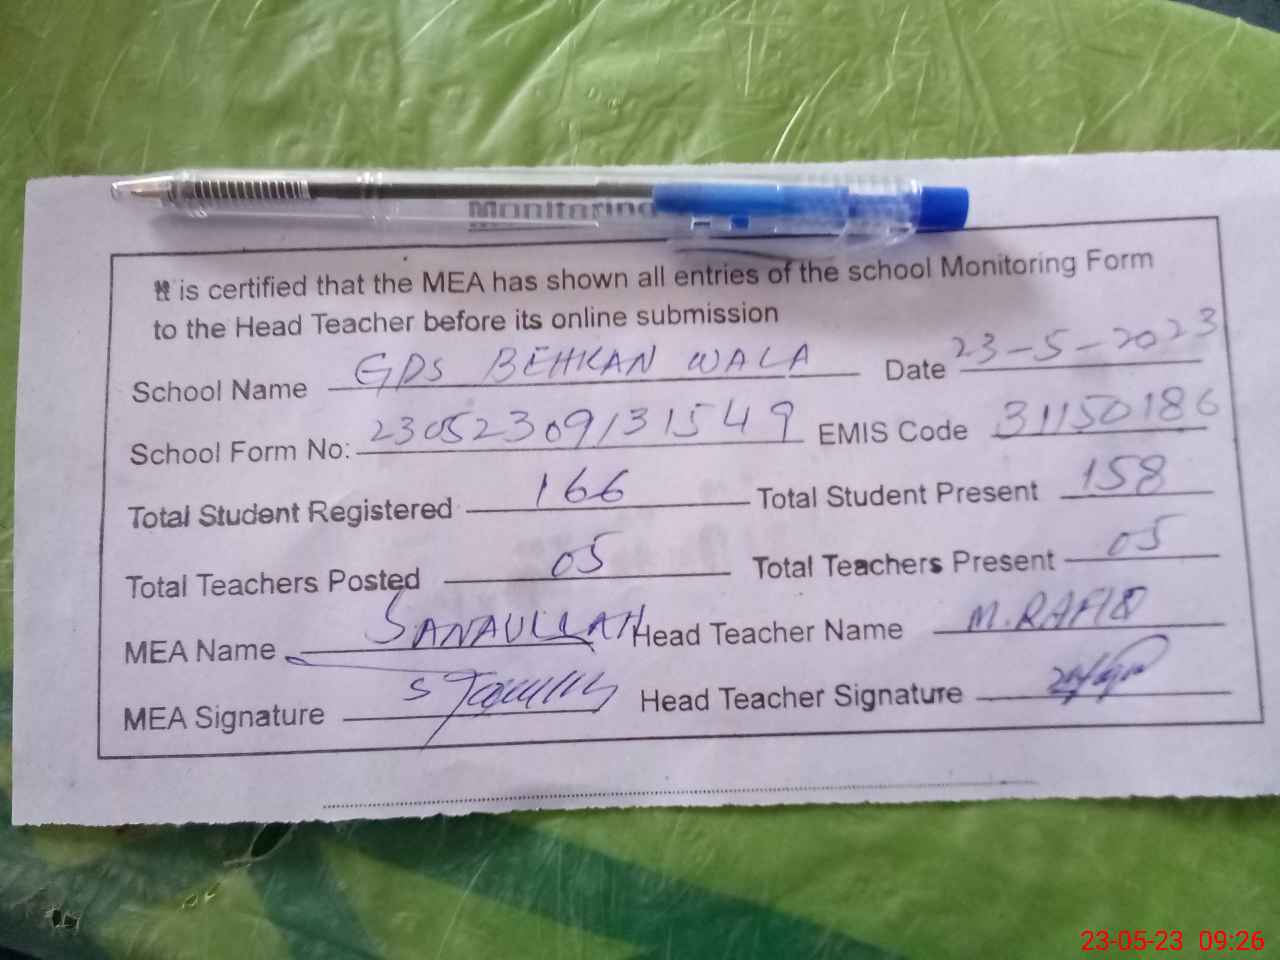 Monitoring
It is certified that the MEA has shown all entries of the school Monitoring Form
to the Head Teacher before its online submission
School Name GPS BEHKAN WALA Date 23-5-2023
School Form No: 23052309131549 EMIS Code 31150186
Total Student Registered 166 Total Student Present 158
Total Teachers Posted 05 Total Teachers Present 05
MEA Name SANAULLAH Head Teacher Name M.RAFIQ
MEA Signature Head Teacher Signature
23-05-23 09:26